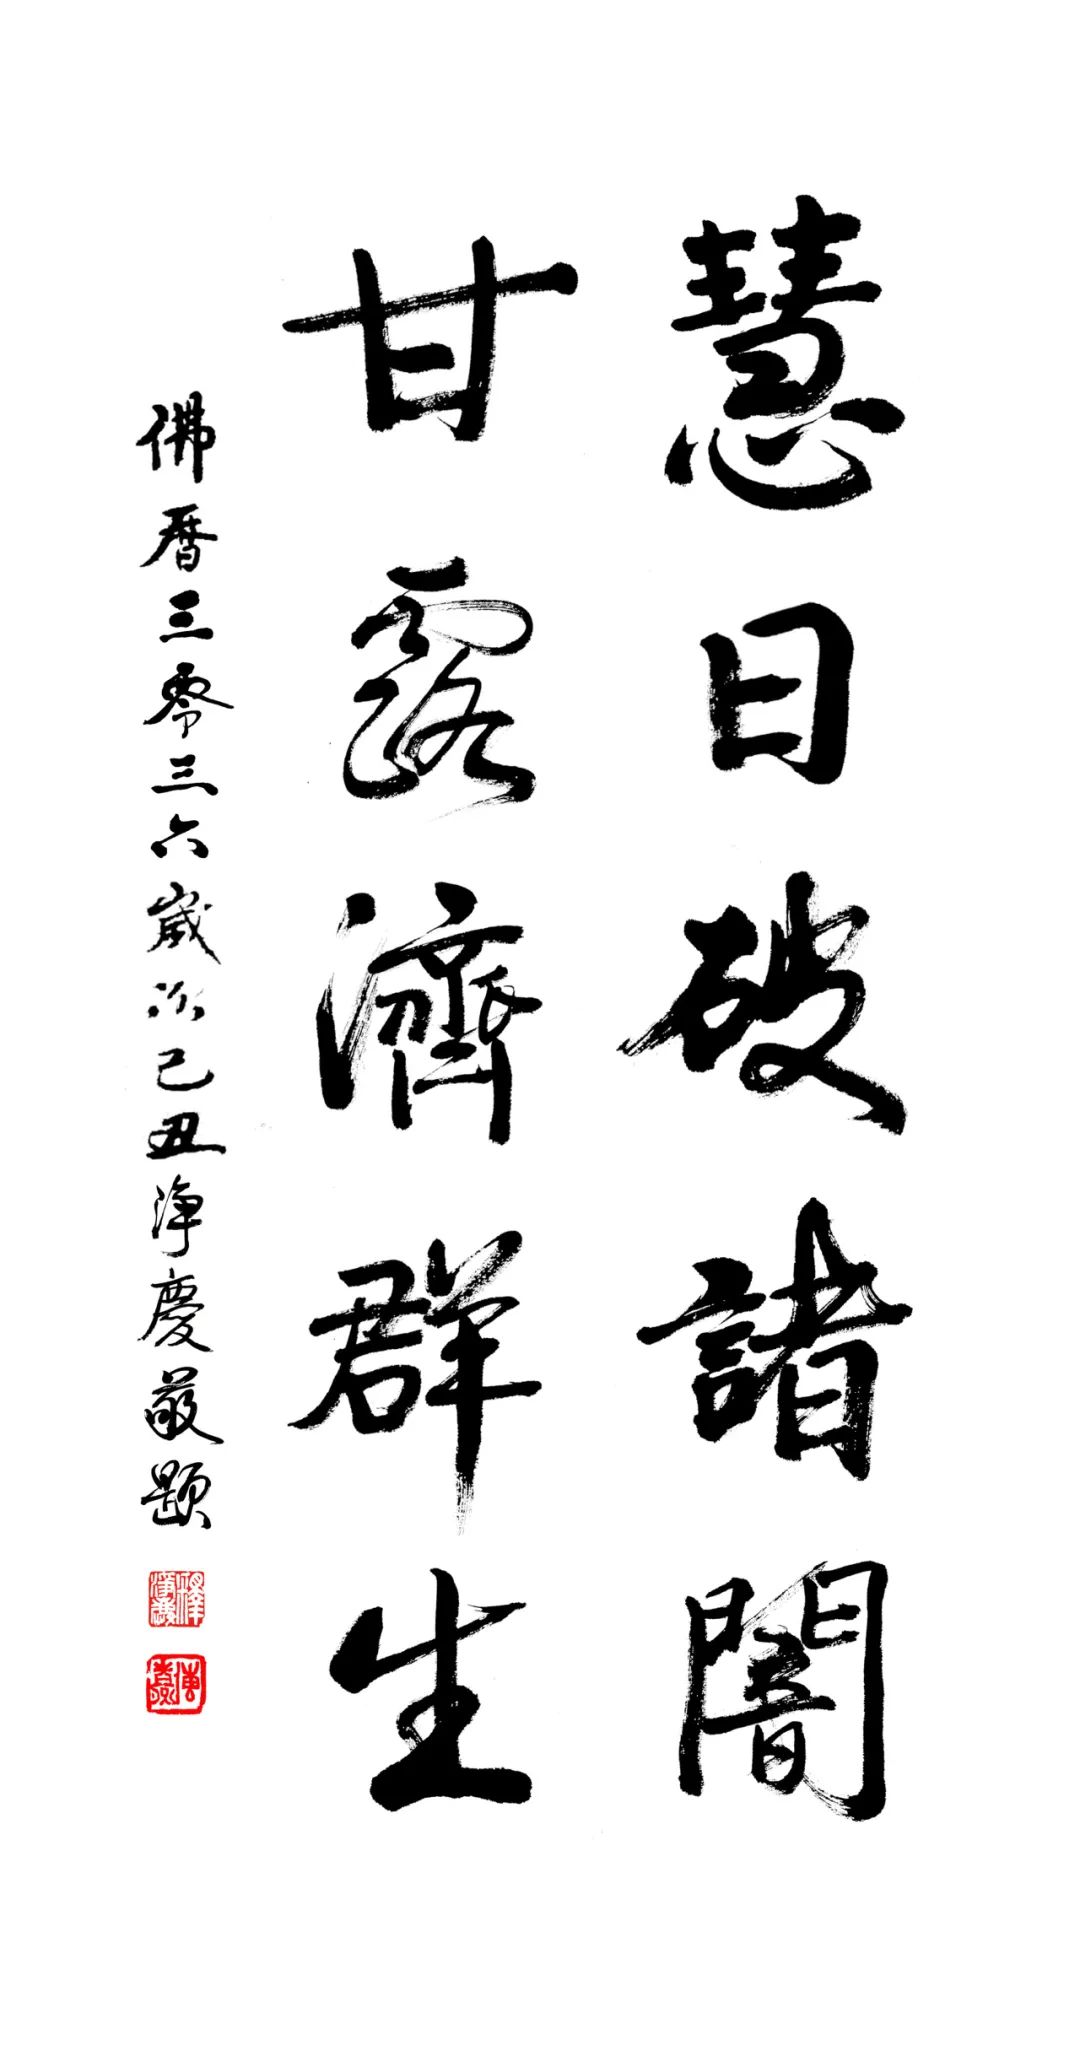 慧日破諸闇
甘露濟群生
佛曆三零三六歲次己丑淨慶敬題